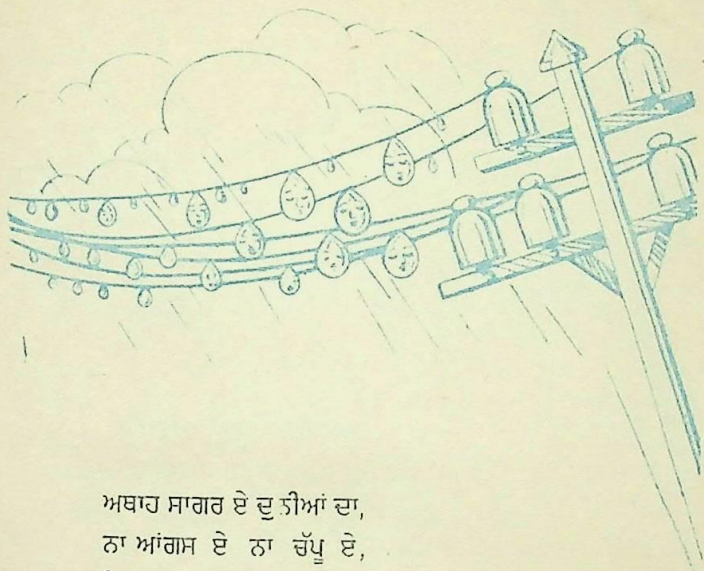 ਅਥਾਹ ਸਾਗਰ ਏ ਦੁਨੀਆਂ ਦਾ,
ਨਾ ਆਂਗਸ ਏ ਨਾ ਚੱਪੂ ਏ,